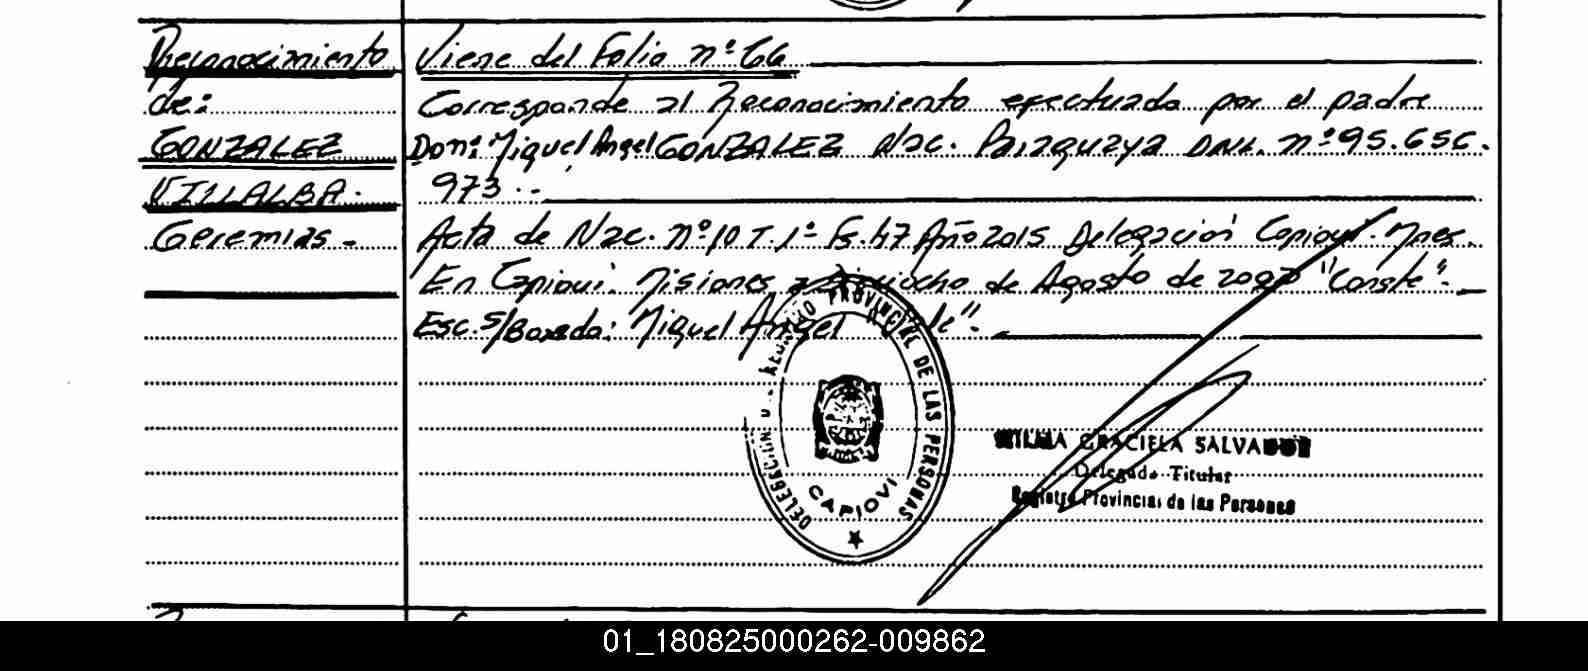 Reconocimiento
de:
GONZALEZ
VILLALBA.
Geremias.-
Viene del Folio nº 66
Corresponde al Reconocimiento efectuado por el padre
Don: Miguel Angel GONZALEZ Nac. Paraguaya DNI. nº 95.656.
973.-
Acta de Nac. nº 10 T. 1º Fs. 47 Año 2015 Delegación Capioví. Mnes.
En Capioví. Misiones a dieciocho de Agosto de "Conste".-
Esc. S/Borrado: Miguel Angel
DELEGACIÓN REGISTRO PROVINCIAL DE LAS PERSONAS
CAPIOVI
WILMA GRACIELA SALVADOR
Delegada Titular
Registro Provincial de las Personas
01_180825000262-009862